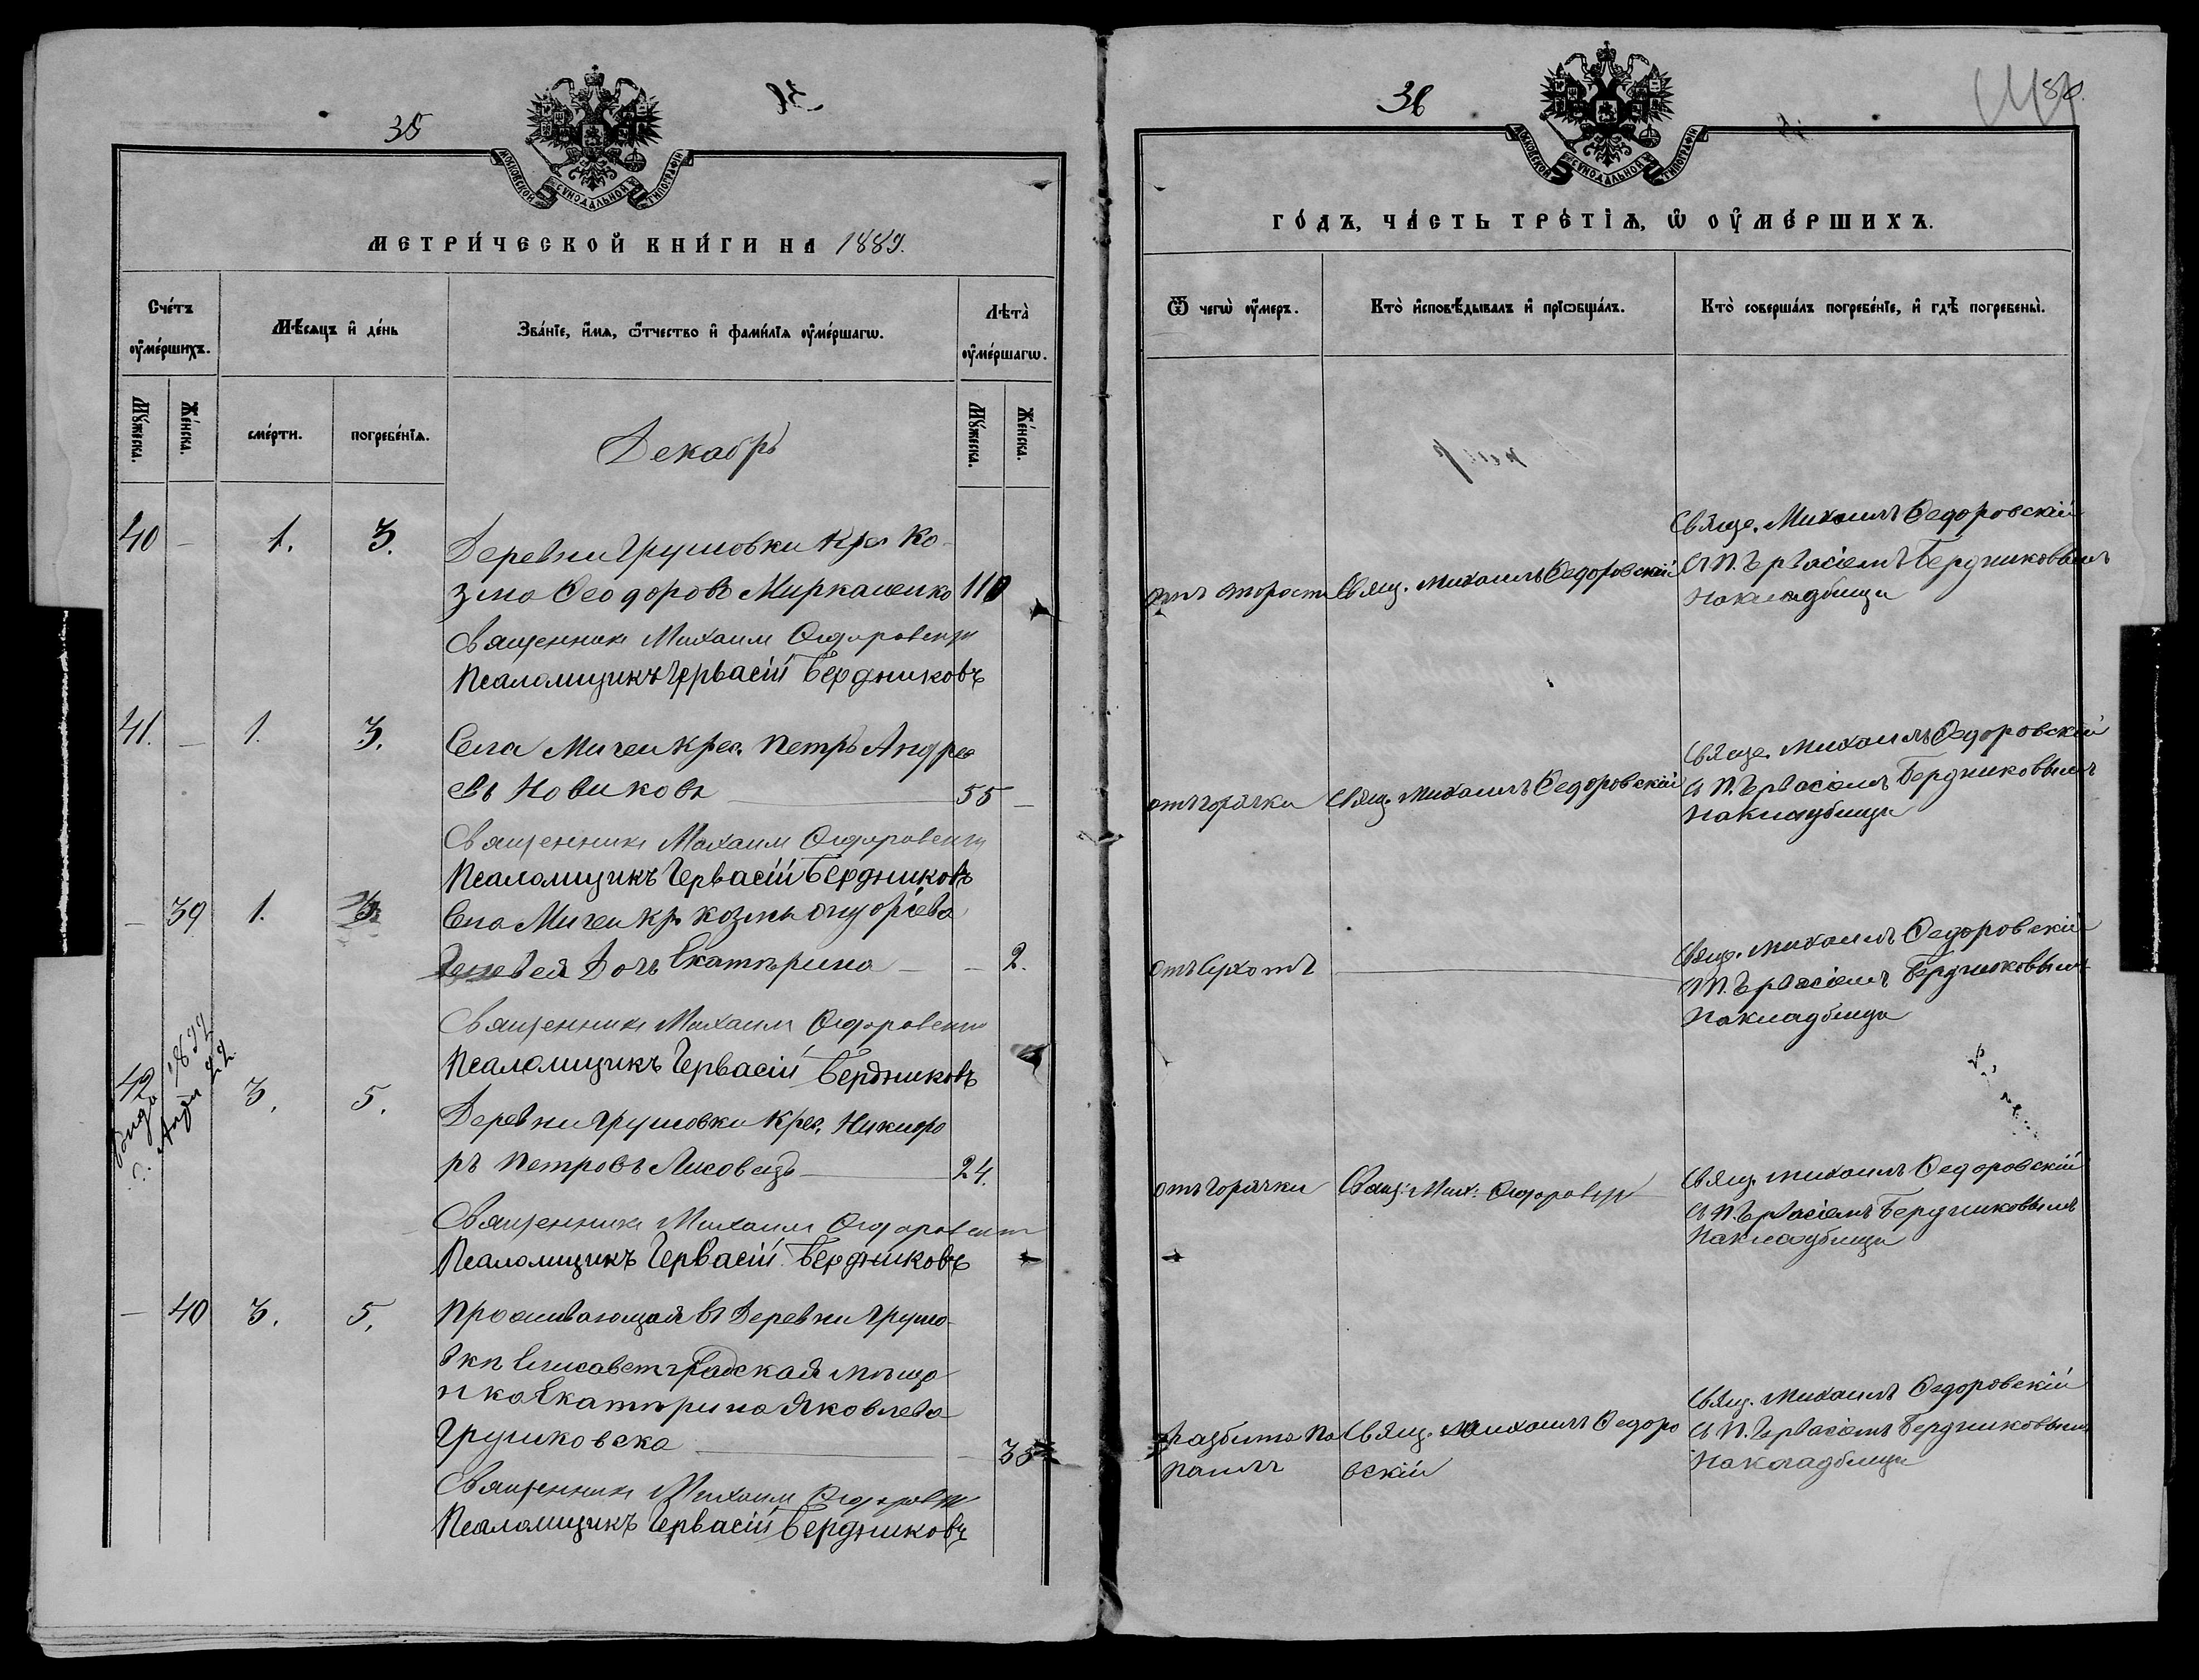 35
МОСКОВСКОЙ СѴНОДАЛЬНОЙ ТИПОГРАФІИ
МЕТРИ́ЧЕСКОЙ КНИ́ГИ НА 1889.
Сче́тъ ᲂу҆ме́ршихъ.
Мѣ́сяцъ и҆ де́нь
Зва́нїе, и҆́мѧ, ѻ҆́тчество и҆ фами́лїѧ ᲂу҆ме́ршагѡ.
Лѣ́та ᲂу҆ме́ршагѡ.
Мꙋ́жеска.
Же́нска.
сме́рти.
погребе́нїѧ.
Мꙋ́жеска.
Же́нска.
Декабрь
40 – 1. 3. Деревни Грушовки Крес Ко-
зма Ѳеодоровъ Миркаленко 110
Священникъ Михаилъ Ѳедоровскій
Псаломщикъ Гервасій Бердниковъ
41. – 1. 3. Села Мигеи Крес. Петръ Андре
евъ Новиковъ 55 –
Священникъ Михаилъ Ѳедоровскій
Псаломщикъ Гервасій Бердниковъ
– 39 1. 3 Села Мигеи Кр. Козмы
Дочь Екатерина – 2.
Священникъ Михаилъ Ѳедоровскій
Псаломщикъ Гервасій Бердниковъ
42 3. 5. Деревни Грушовки Крес. Никифо
ръ Петровъ Лисовецъ 24.
Священникъ Михаилъ Ѳедоровскій
Псаломщикъ Гервасій Бердниковъ
– 40 3. 5. Проживающая въ Деревни Грушо-
вки Елисаветградская мѣща
нка Екатерина Яковлева
– 35
Священникъ Михаилъ Ѳедоровскій
Псаломщикъ Гервасій Бердниковъ
36
МОСКОВСКОЙ СѴНОДАЛЬНОЙ ТИПОГРАФІИ
ГО́ДЪ, ЧА́СТЬ ТРЕ́ТЇѦ, Ѡ ОУ҆МЕ́РШИХЪ.
Ѿ чегѡ̀ ᲂу҆́меръ.
Кто̀ и҆сповѣ́дывалъ и҆ прїѡбща́лъ.
Кто̀ соверша́лъ погребе́нїе, и҆ гдѣ̀ погребены̀.
отъ старости Свящ. Михаилъ Ѳедоровскій
Свяще. Михаилъ Ѳедоровскій
съ П. Гервасіемъ Бердниковымъ
на кладбищи
отъ горячки Свящ. Михаилъ Ѳедоровскій
Свяще. Михаилъ Ѳедоровскій
съ П. Гервасіемъ Бердниковымъ
на кладбищи
Свящ. Михаилъ Ѳедоровскій
съ П. Гервасіемъ Бердниковымъ
на кладбищи
отъ горячки Свящ: Мих: Ѳедоровскій
Свящ. Михаилъ Ѳедоровскій
съ П. Гервасіемъ Бердниковымъ
на кладбищи
разбита па Свящ. Михаилъ Ѳедоро
вскій
Свящ. Михаилъ Ѳедоровскій
съ П. Гервасіемъ Бердниковымъ
на кладбищи